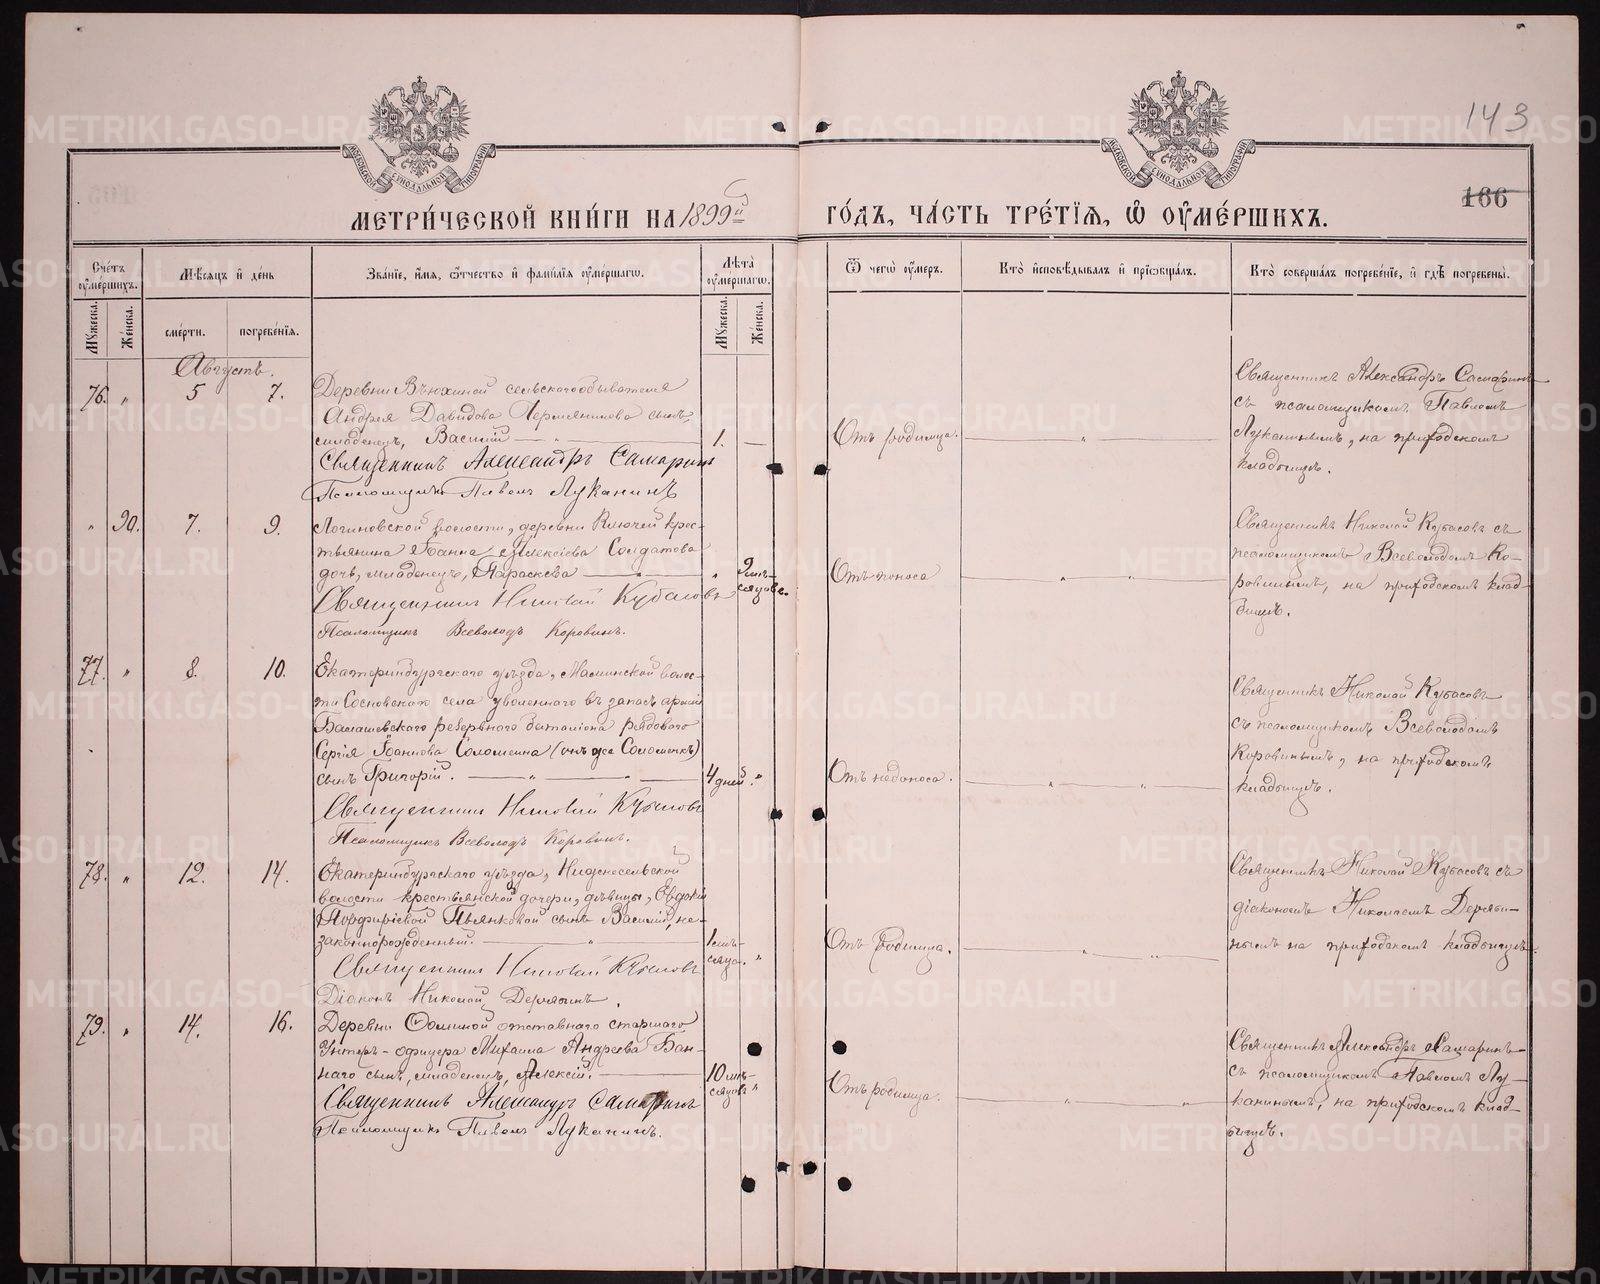 143
166
МЕТРИЧЕСКОЙ КНИГИ НА 1899й
ГОДЪ, ЧАСТЬ ТРЕТІЯ, Ѡ ОУМЕРШИХЪ.
Счетъ оумершихъ.
Мужеска.
Женска.
Мѣсяцъ и день
смерти.
погребенія.
Званіе, имя, отчество и фамилія оумершагѡ.
Лѣта оумершагѡ.
Мужеска.
Женска.
Ѿ чегѡ оумеръ.
Кто исповѣдывалъ и пріобщалъ.
Кто совершалъ погребеніе, и гдѣ погребены.
Августъ.
76. „ 5 7.
Деревни Вьюхиной сельскагообывателя
Андрея Давидова сынъ,
младенецъ, Василій — „ — 1. —
Священникъ Александръ Самаринъ
Псаломщикъ Павелъ Луканинъ
Отъ родимца.
Священникъ Александръ Самаринъ
съ псаломщикомъ Павломъ
Луканинымъ, на приходскомъ
кладбищѣ.
„ 90. 7. 9.
Логиновской волости, деревни Ключей крес-
тьянина Іоанна Алексіева Солдатова
дочь, младенецъ, Параскева — „ 9 мѣ-
сяцовъ.
Священникъ Николай Кубасовъ
Псаломщикъ Всеволодъ Коровинъ.
Отъ поноса
Священникъ Николай Кубасовъ съ
псаломщикомъ Всеволодомъ Ко-
ровинымъ, на приходскомъ клад-
бищѣ.
77. „ 8. 10.
Екатеринбургскаго уѣзда, Маминской волос-
ти Сосновскаго села уволеннаго въ запасъ арміи
Балашевскаго резервнаго баталіона рядоваго
Сергія Іоаннова Соломеина (онъ же Соломенкъ)
сынъ Григорій. — „ — 4 дней. „
Священникъ Николай Кубасовъ
Псаломщикъ Всеволодъ Коровинъ.
Отъ недоноса.
Священникъ Николай Кубасовъ
съ псаломщикомъ Всеволодомъ
Коровинымъ, на приходскомъ
кладбищѣ.
78. „ 12. 14.
Екатеринбургскаго уѣзда, Нижнесельской
волости крестьянской дочери, дѣвицы, Евдокіи
Порфиріевой Пьянковой сынъ Василій, не-
законнорожденный. — „ — 1 мѣ-
сяца. „
Священникъ Николай Кубасовъ
Діаконъ Николай Дерябинъ.
Отъ родимца.
Священникъ Николай Кубасовъ съ
діакономъ Николаемъ Деряби-
нымъ на приходскомъ кладбищѣ.
79. „ 14. 16.
Деревни Ѳоминой отставнаго старшаго
Унтеръ-офицера Михаила Андреева Бан-
наго сынъ, младенецъ, Алексій. — 10 мѣ-
сяцовъ „
Священникъ Александръ Самаринъ
Псаломщикъ Павелъ Луканинъ.
Отъ родимца.
Священникъ Александръ Самаринъ
съ псаломщикомъ Павломъ Лу-
канинымъ, на приходскомъ клад-
бищѣ.
METRIKI.GASO-URAL.RU